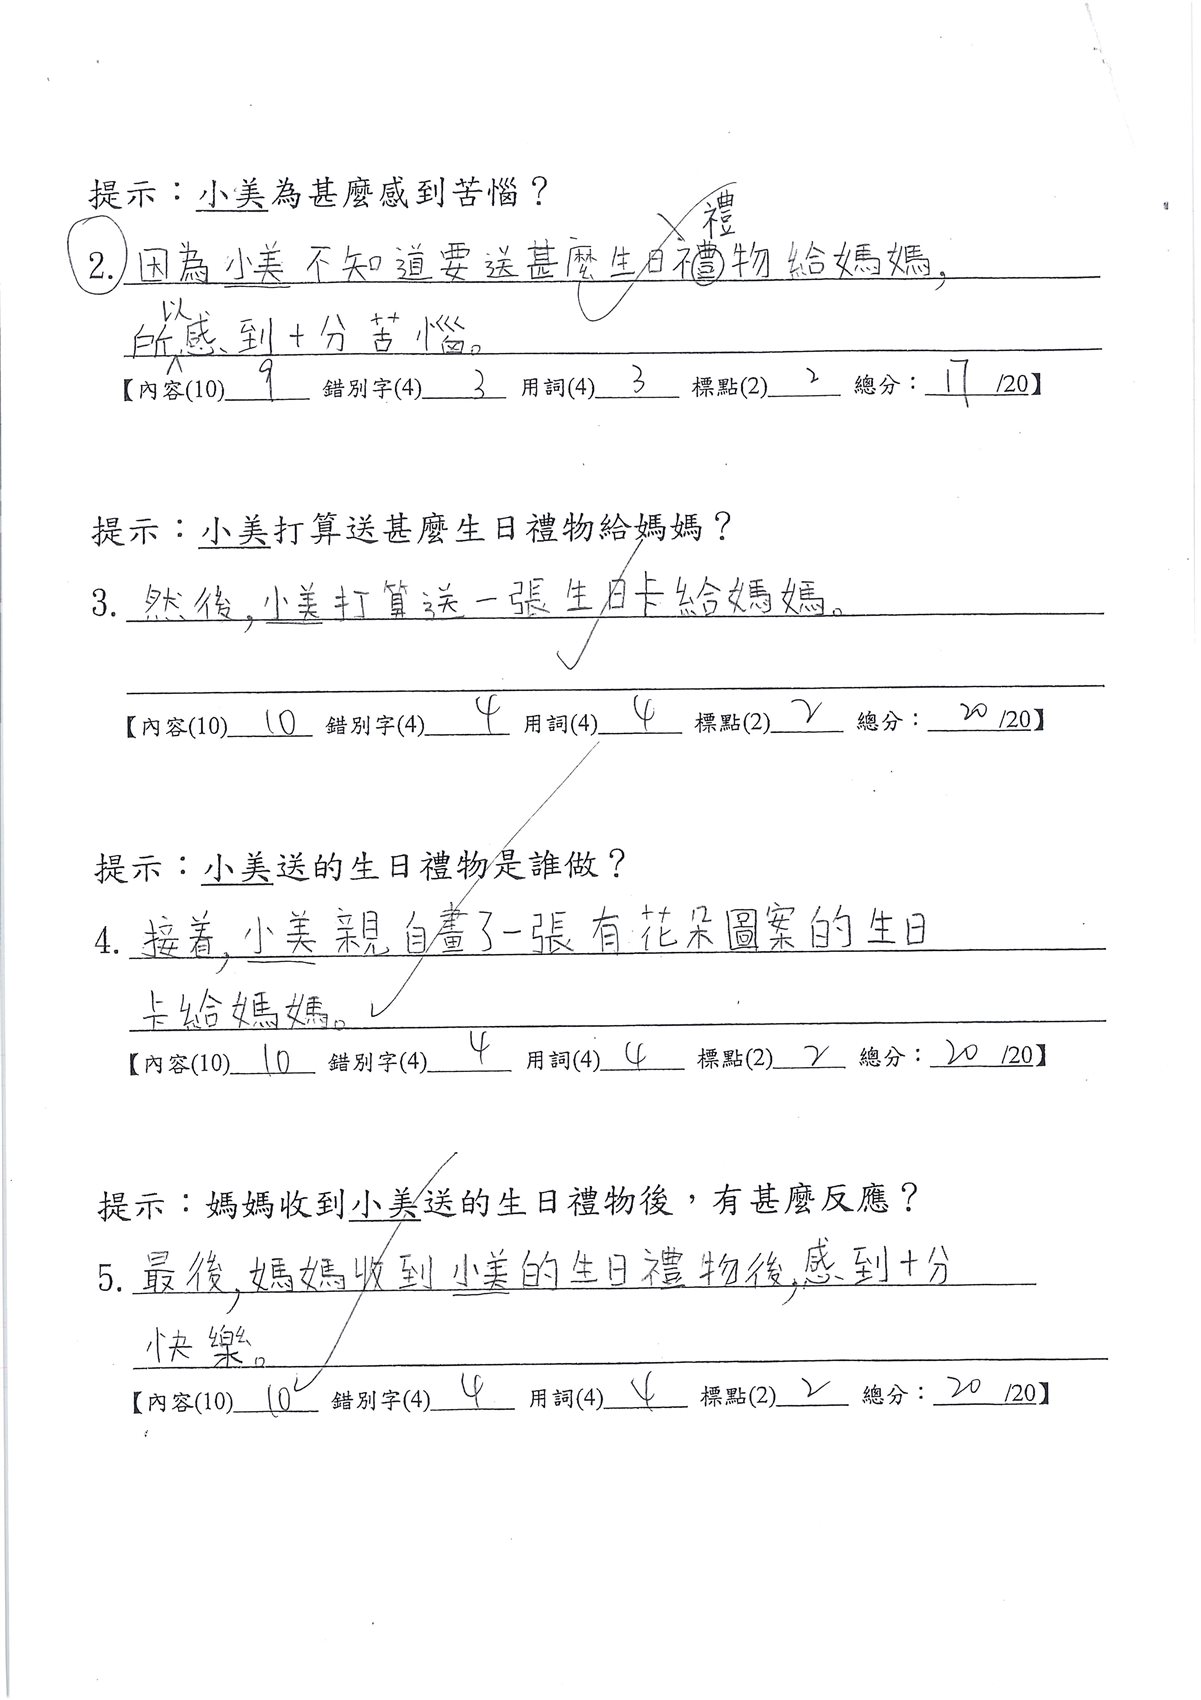 提示：小美為甚麼感到苦惱？
禮
2. 因為小美不知道要送甚麼生日禮物給媽媽，
以
所感到十分苦惱。
【內容(10) 9 錯別字(4) 3 用詞(4) 3 標點(2) 2 總分： 17 /20】
提示：小美打算送甚麼生日禮物給媽媽？
3. 然後，小美打算送一張生日卡給媽媽。
【內容(10) 10 錯別字(4) 4 用詞(4) 4 標點(2) 2 總分： 20 /20】
提示：小美送的生日禮物是誰做？
4. 接着，小美親自畫了一張有花朵圖案的生日
卡給媽媽。
【內容(10) 10 錯別字(4) 4 用詞(4) 4 標點(2) 2 總分： 20 /20】
提示：媽媽收到小美送的生日禮物後，有甚麼反應？
5. 最後，媽媽收到小美的生日禮物後，感到十分
快樂。
【內容(10) 10 錯別字(4) 4 用詞(4) 4 標點(2) 2 總分： 20 /20】